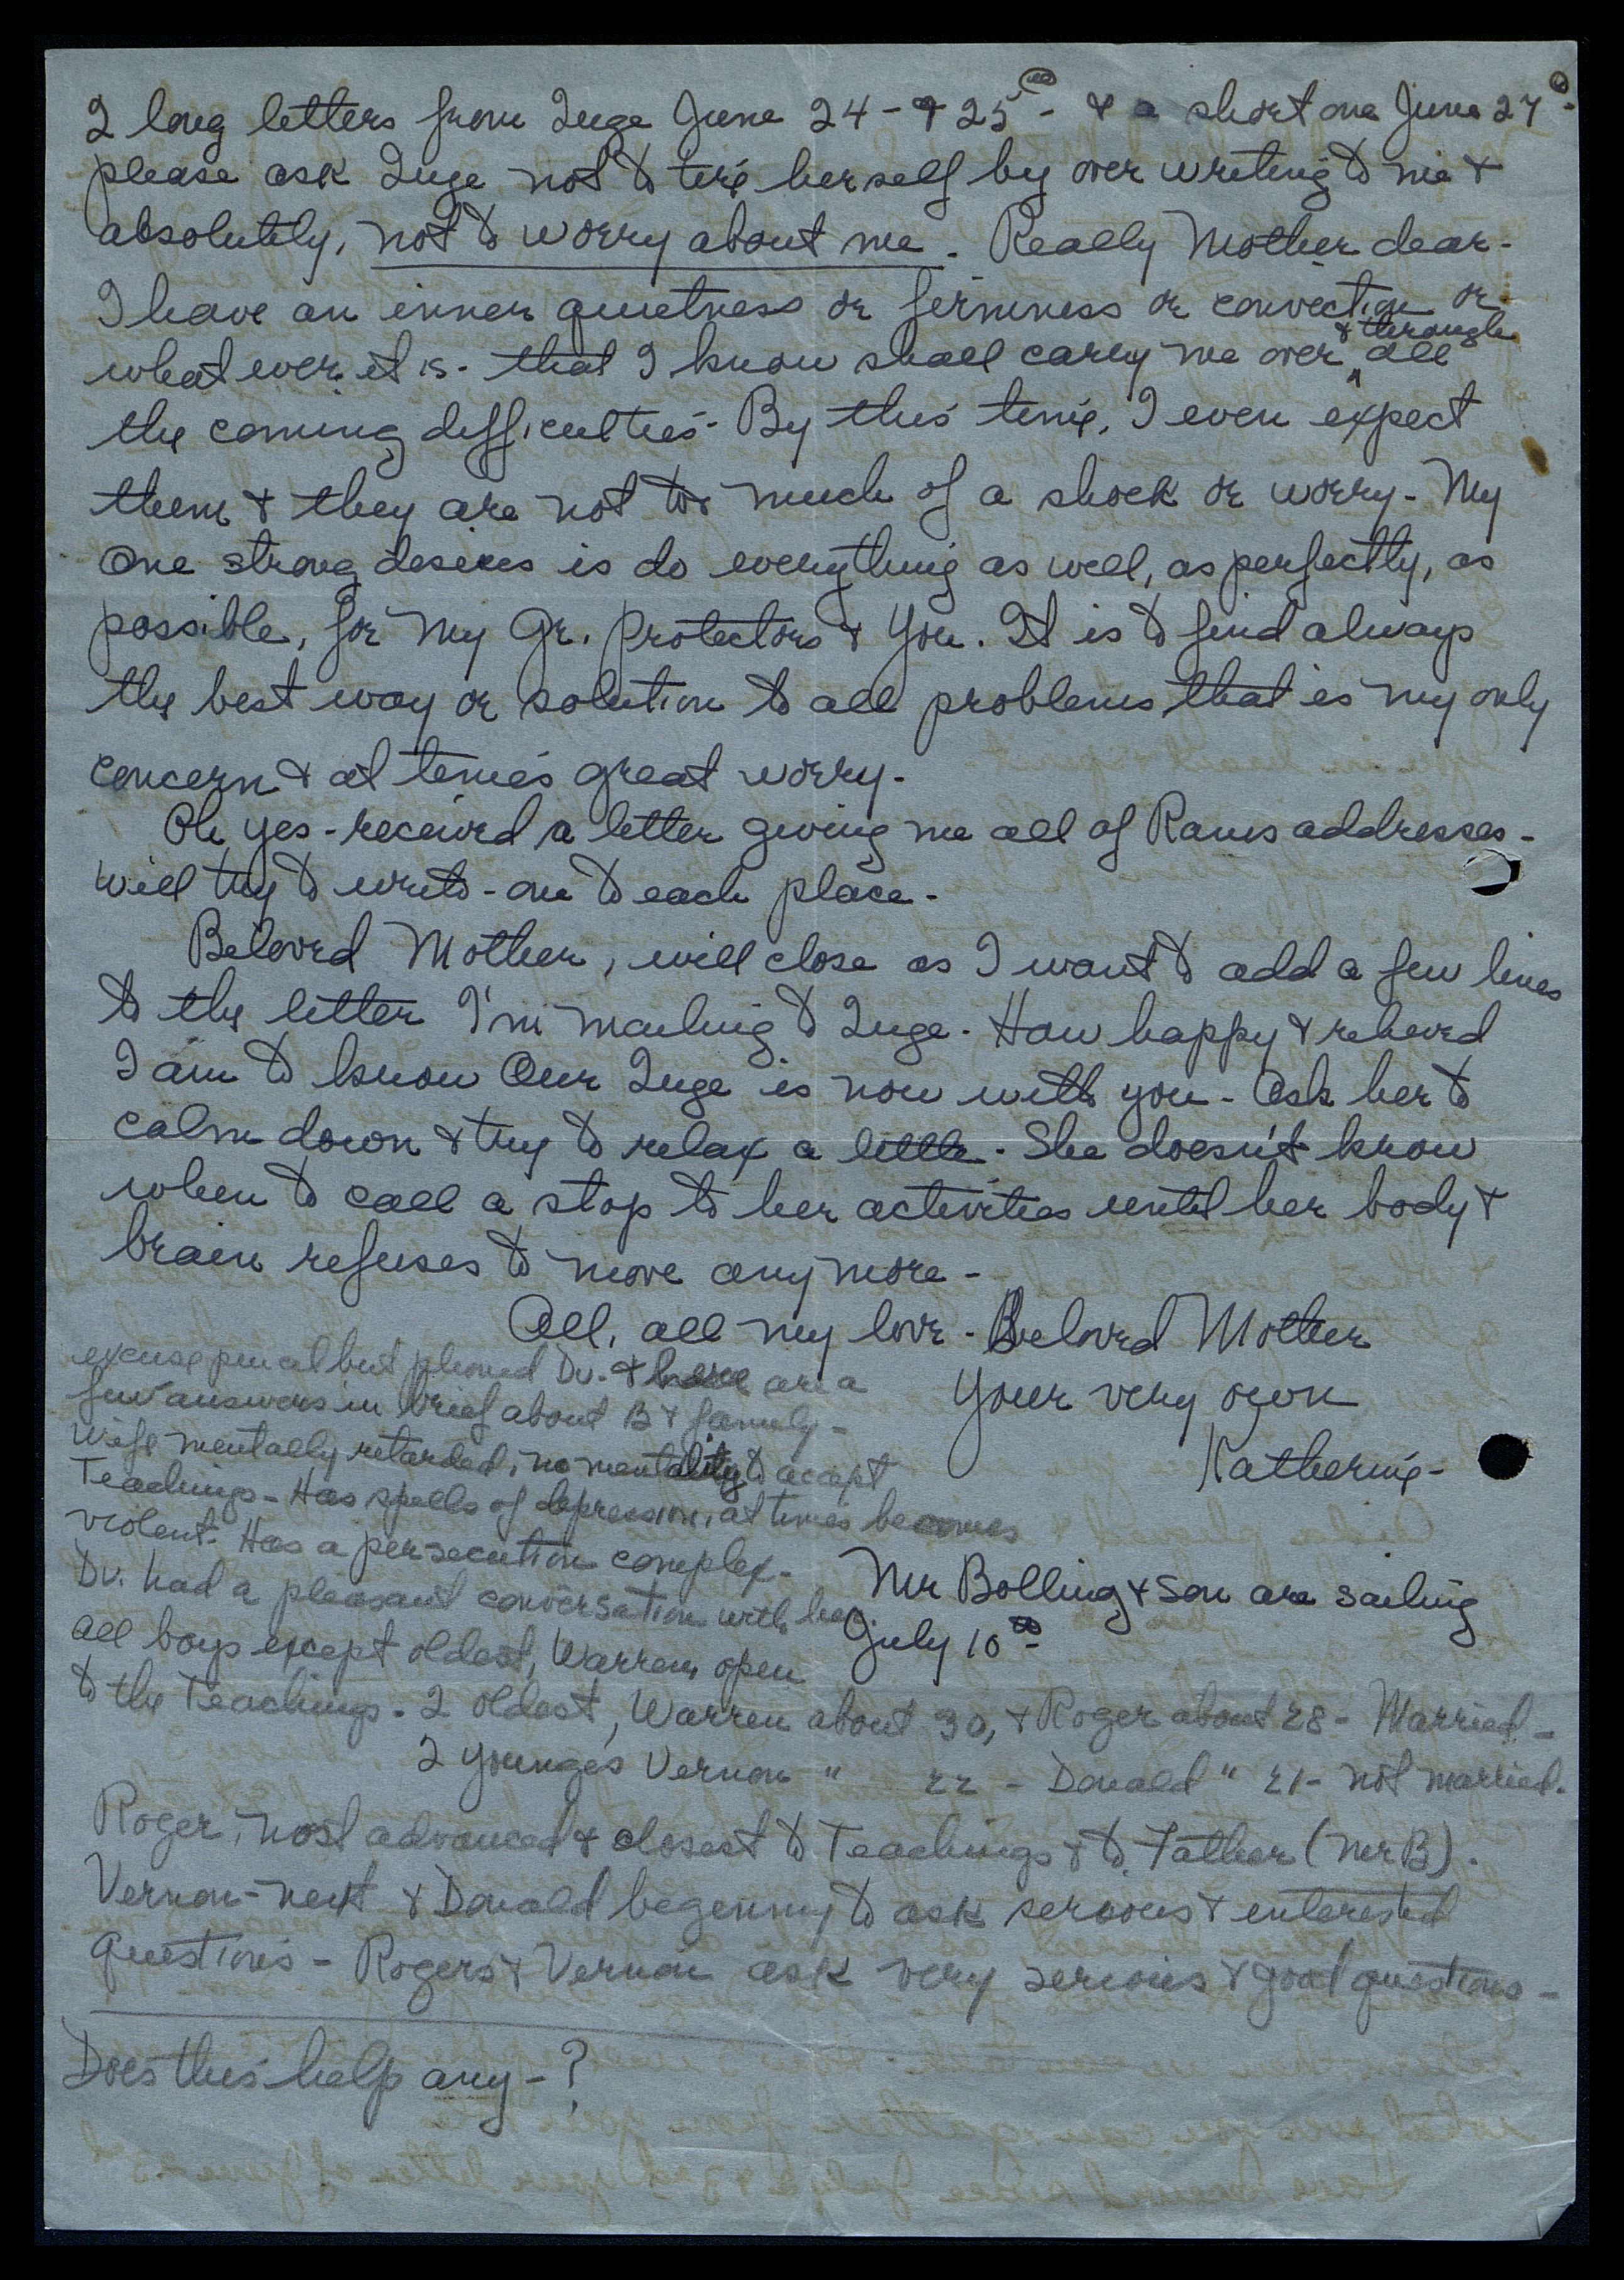 2 long letters from Inge June 24 - & 25th - & a short one June 27th -
please ask Inge not to tire herself by over writing to me &
absolutely, not to worry about me. Really Mother dear -
I have an inner quietness or firmness or conviction or
what ever it is - that I know shall carry me over & through all
the coming difficulties - By this time, I even expect
them & they are not too much of a shock or worry - My
one strong desires is do everything as well, as perfectly, as
possible, for My Gr. Protectors & You. It is to find always
the best way or solution to all problems that is my only
concern & at times great worry.
Oh, yes - received a letter giving me all of Ranis addresses -
Will try to write - one to each place -
Beloved Mother, will close as I want to add a few lines
to the letter I'm mailing to Inge. How happy & relieved
I am to know Our Inge is now with you - Ask her to
calm down & try to relax a little. She doesn't know
when to call a stop to her activities until her body &
brain refuses to move any more -
All, all my love - Beloved Mother
Your very own
Katherine -
excuse pencil but phoned Dv. & here are a
few answers in brief about B & family -
Wife mentally retarded, no mentality to accept
Teachings - Has spells of depression, at times becomes
violent - Has a persecution complex -
Dv. had a pleasant conversation with her.
Mr Bolling & Son are sailing
July 10th -
All boys except oldest, Warren, open
to the Teachings. 2 oldest, Warren about 30, & Roger about 28 - Married -
2 younges Vernon " 22 - Donald " 21 - not married.
Roger, most advanced & closest to Teachings & to Father (Mr B).
Vernon - next & Donald beginning to ask serious & interested
questions - Rogers & Vernon ask very serious & good questions -
Does this help any - ?